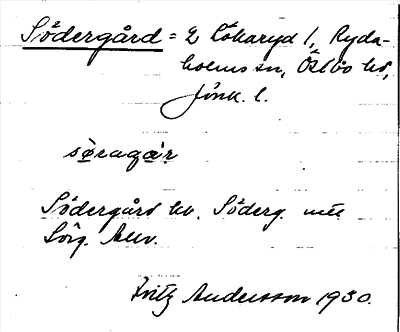 Södergård = 2 Lökaryd 1, Ryda-
holms sn, Östbo hd,
Jönk. l.
söragär
Södergård hv. Söderg. mtl
Sörg. Allv.
Fritz Andersson 1930.